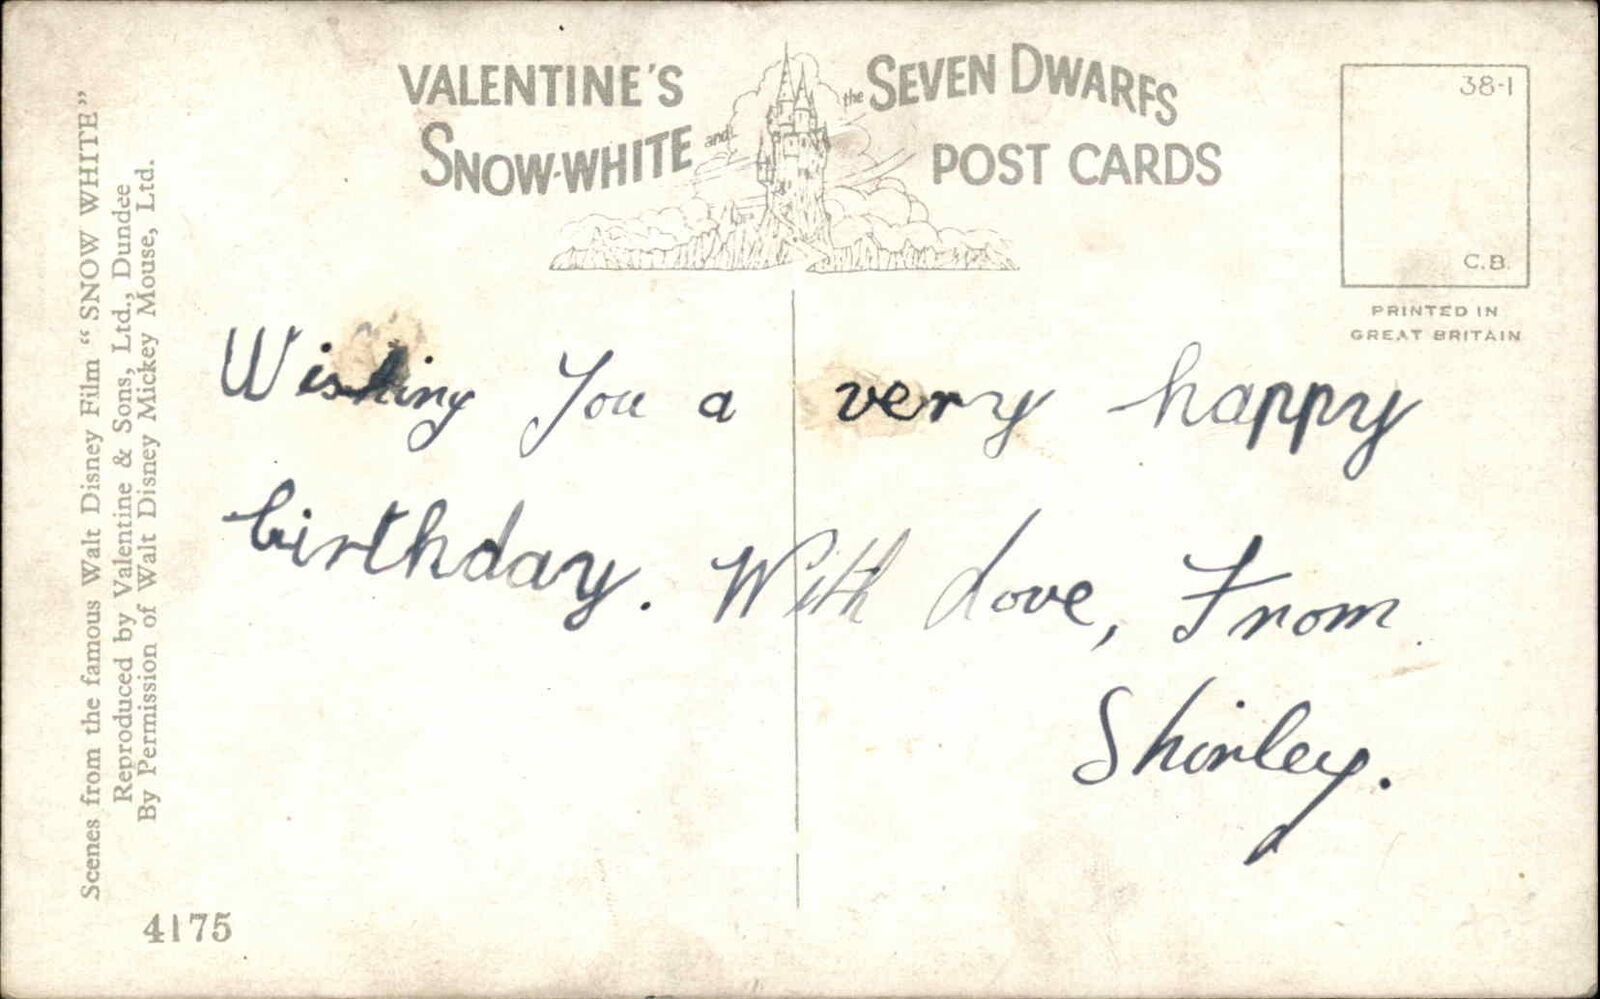 VALENTINE'S
SNOW-WHITE and
the SEVEN DWARFS
POST CARDS
38-1
C.B.
PRINTED IN
GREAT BRITAIN
Scenes from the famous Walt Disney Film “SNOW WHITE”
Reproduced by Valentine & Sons, Ltd., Dundee
By Permission of Walt Disney Mickey Mouse, Ltd.
Wishing You a very happy
birthday. With Love, From
Shirley.
4175